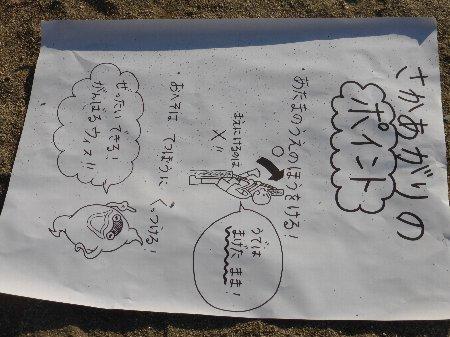 さかあがりの
ポイント
・あたまのうえのほうをける!
○
まえにけるのは
×!!
うでは
まげたまま!
・おへそは てつぼうに くっつける!
ぜったいできる!
がんばるウィス!!